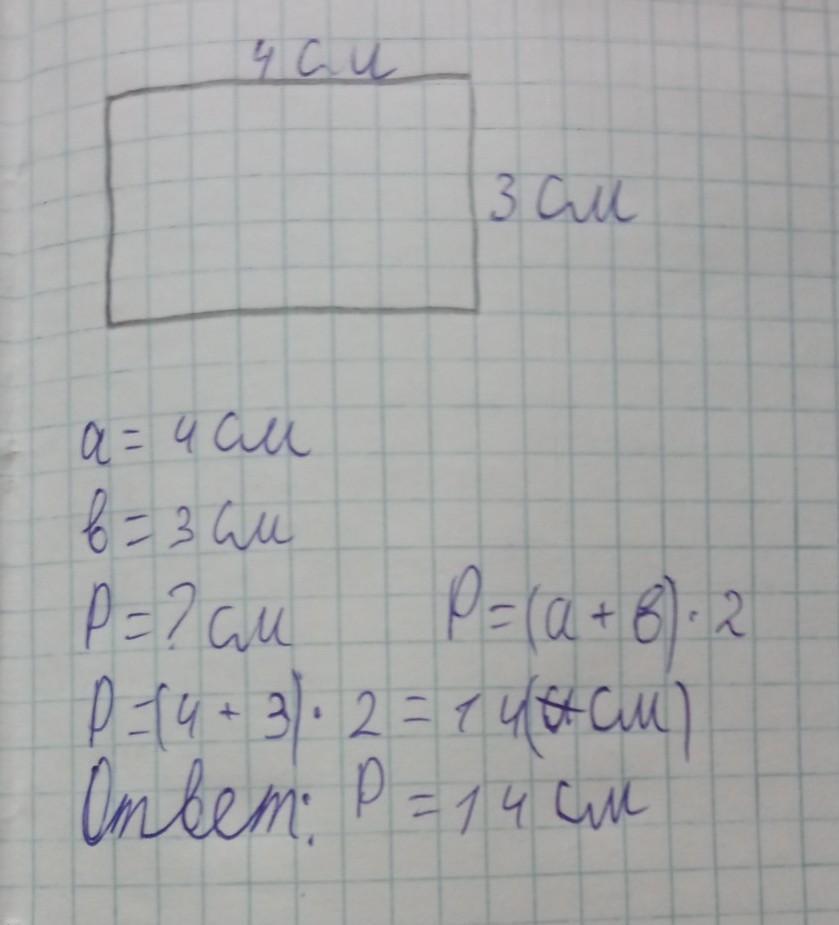 4 см
3 см
a = 4 см
в = 3 см
P = ? см
P = (a + в) · 2
P = (4 + 3) · 2 = 14 (см)
Ответ: P = 14 см